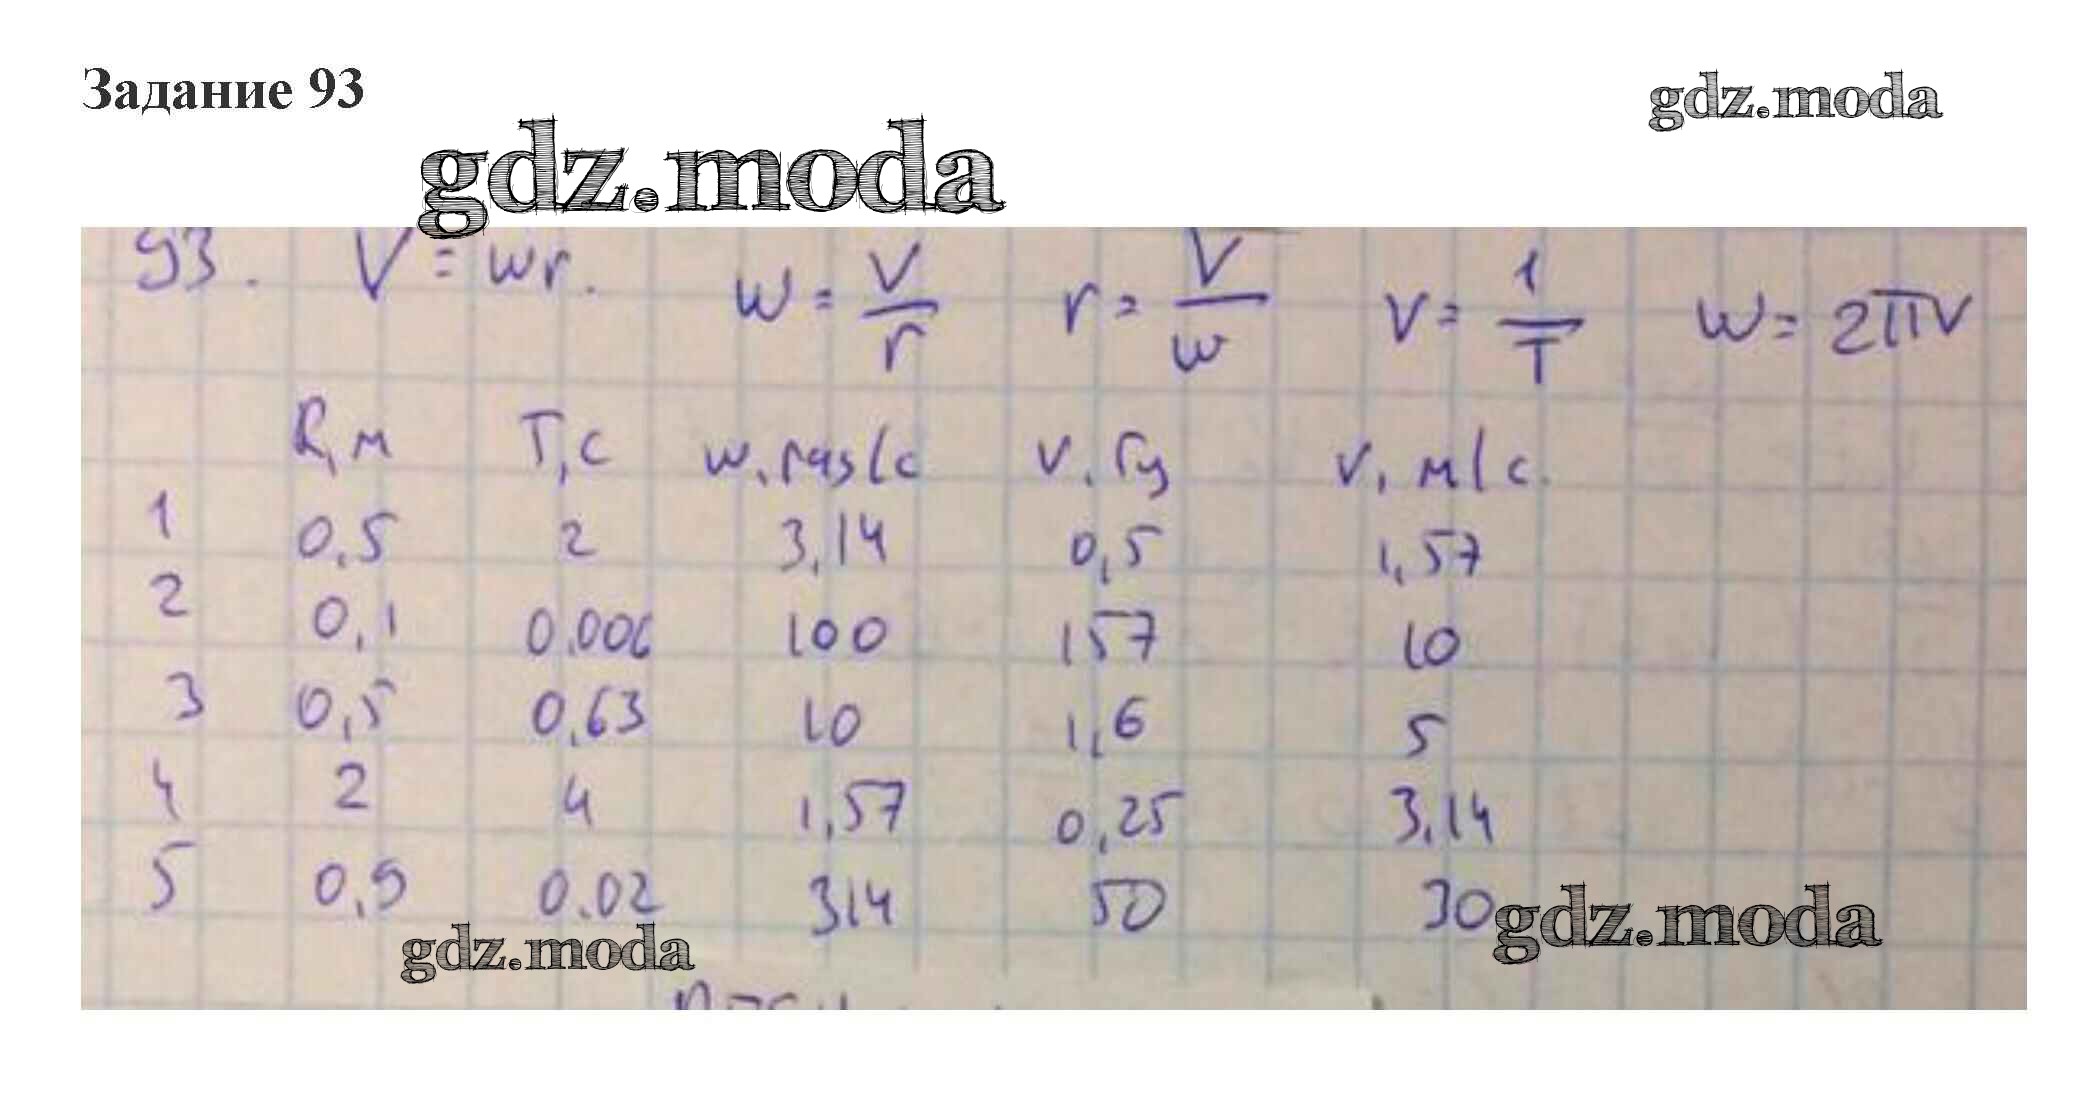 Задание 93
gdz.moda
gdz.moda
93. V = wr. w = V/r r = V/w ν = 1/T w = 2πν
R, м T, с w, rad/c ν, Гц V, м/с.
1 0,5 2 3,14 0,5 1,57
2 0,1 0.006 100 157 10
3 0,5 0,63 10 1,6 5
4 2 4 1,57 0,25 3,14
5 0,9 0.02 314 50 30
gdz.moda
gdz.moda